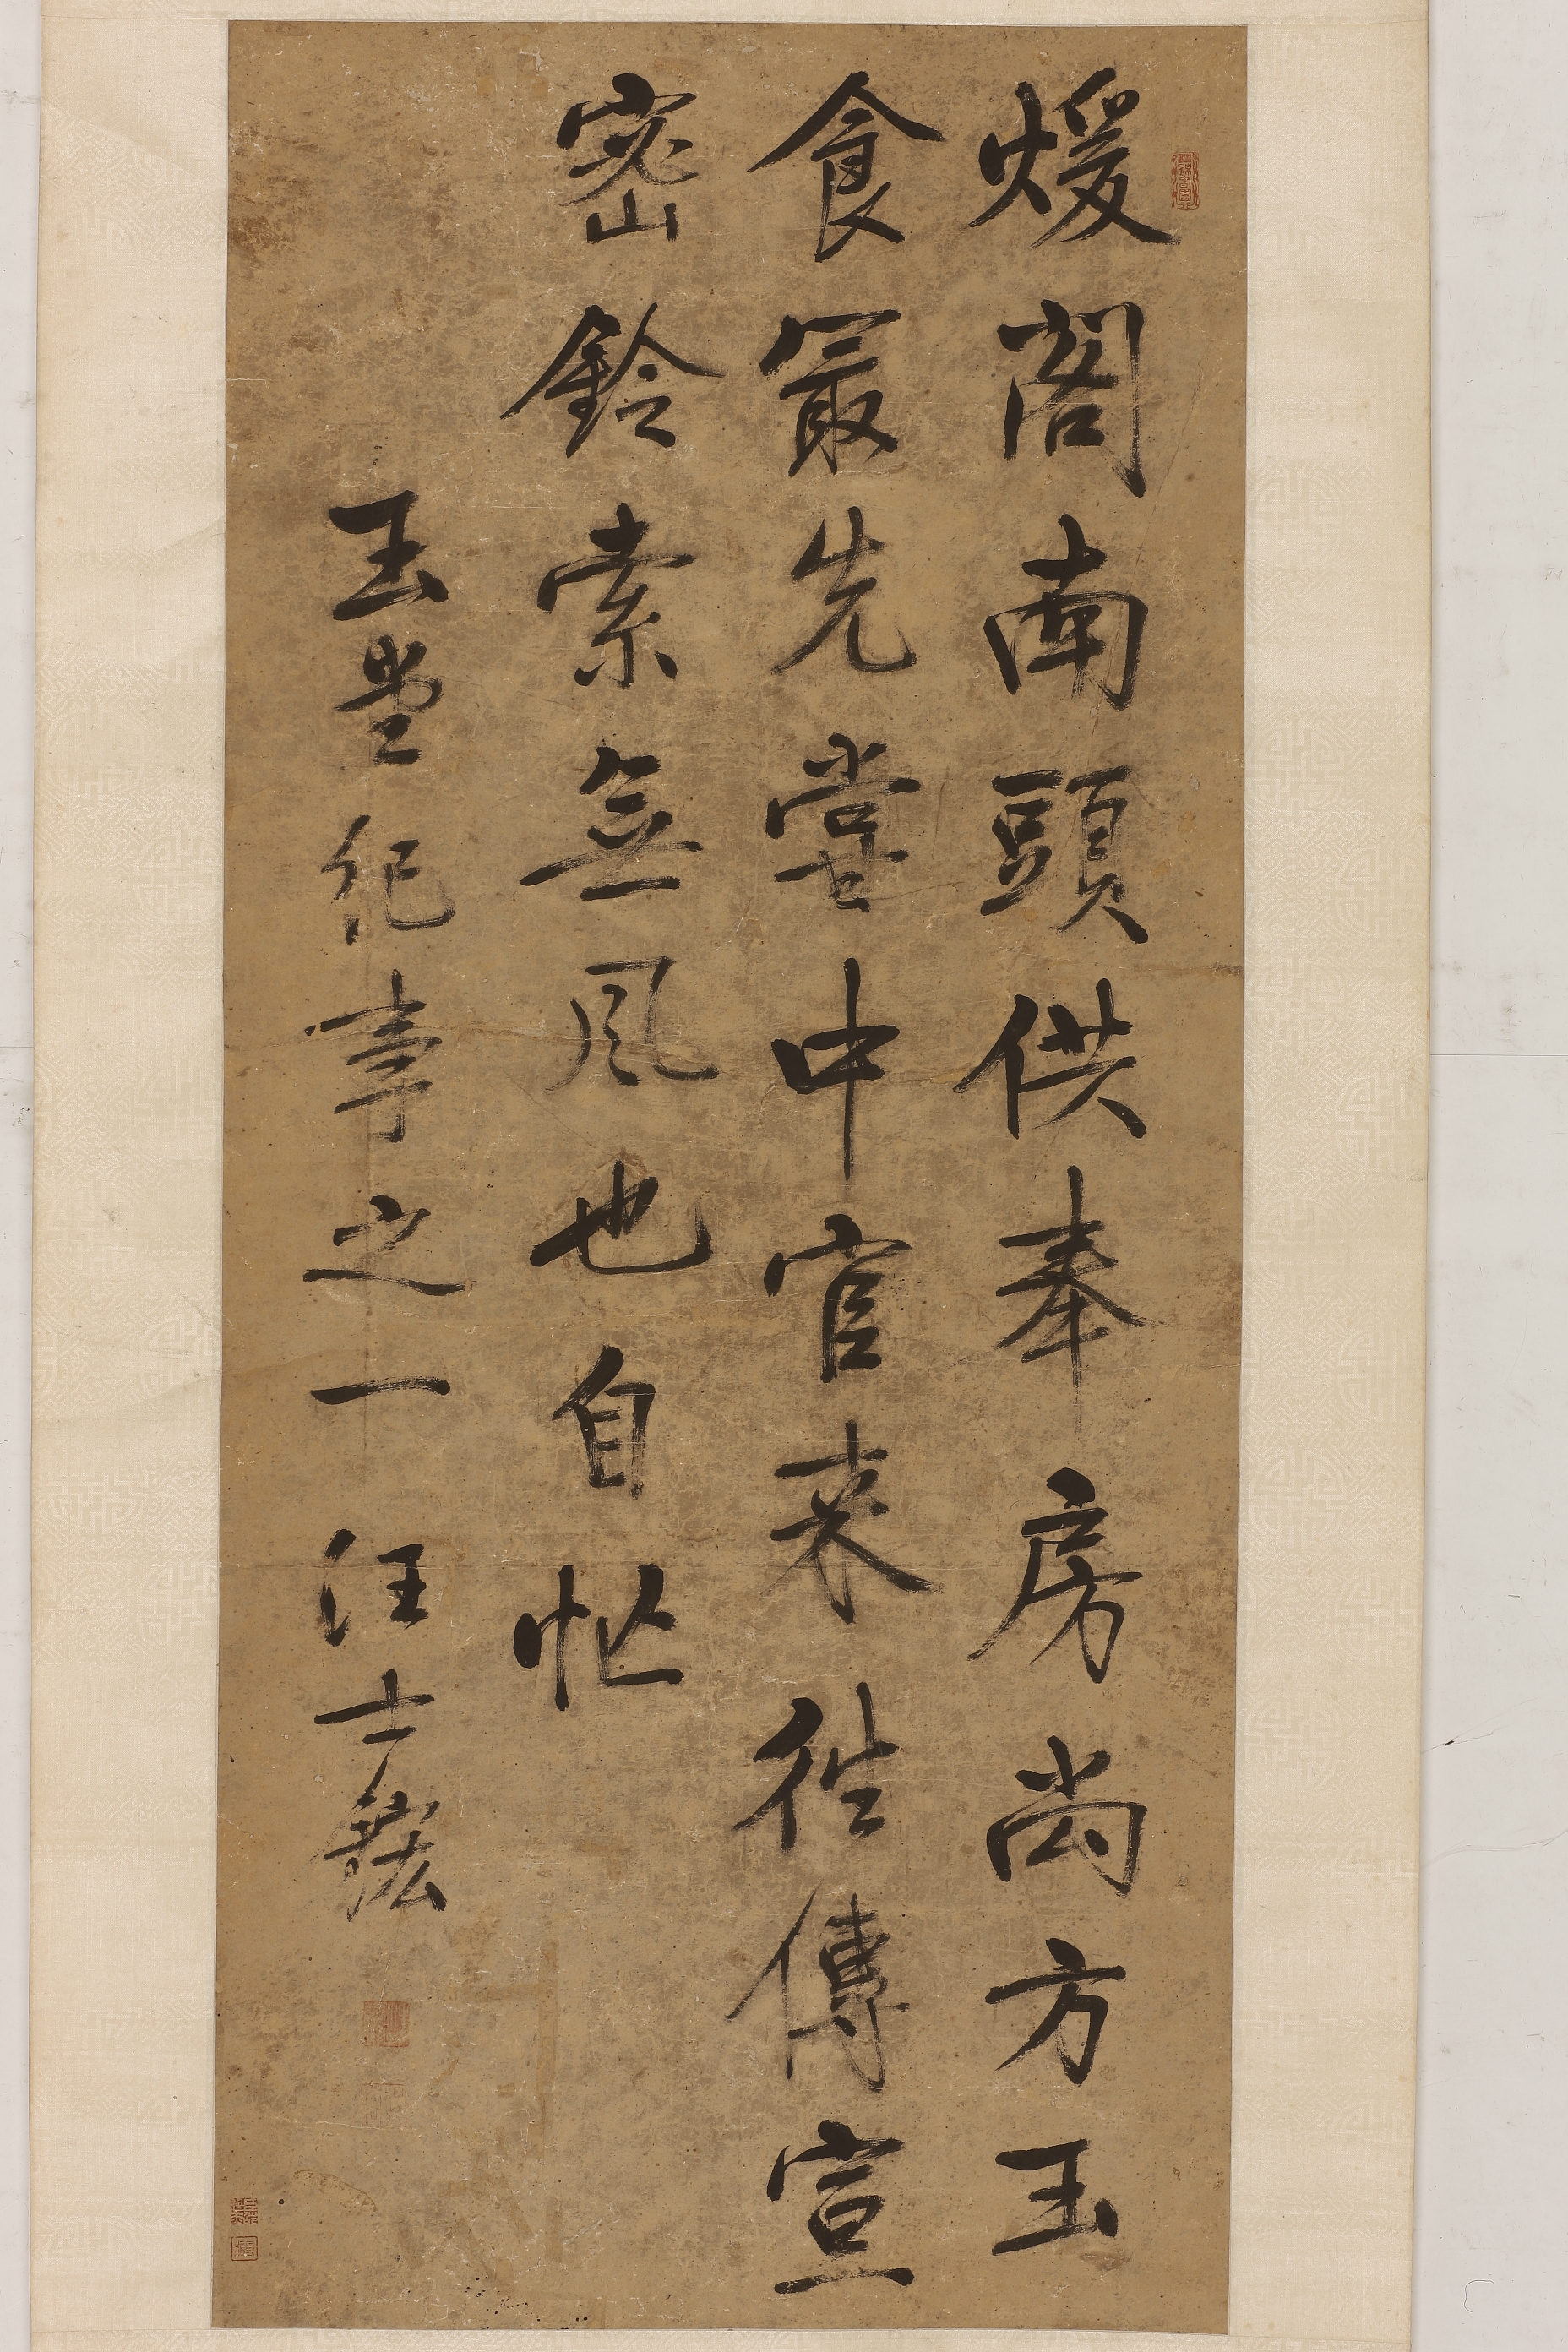 煖閣南頭供奉房尚方玉
食冣先嘗中官来往傳宣
密鈴索無風也自忙
玉堂紀事之一 汪士鋐